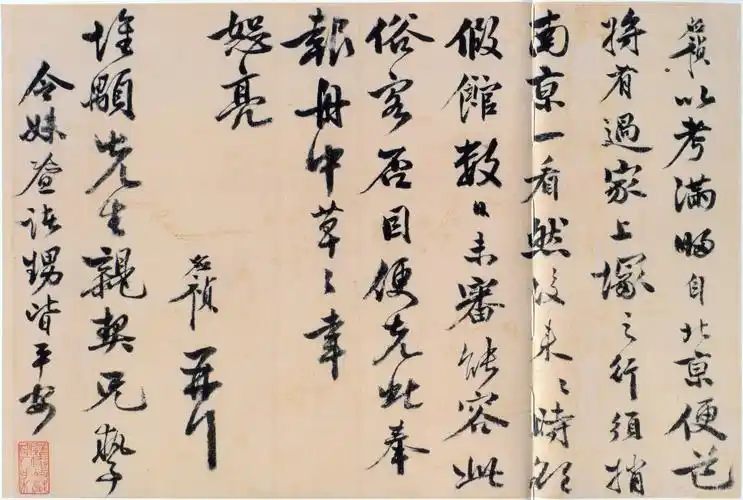 應禎以考滿歸自北京便道
將有過家上塚之行須捎
南京一看然後來〻時欲
假館數日未審能容此
俗客否因便先此奉
報舟中草〻幸
恕亮
應禎再拜
惟顒先生親契兄執事
令妹曁諸甥皆平安